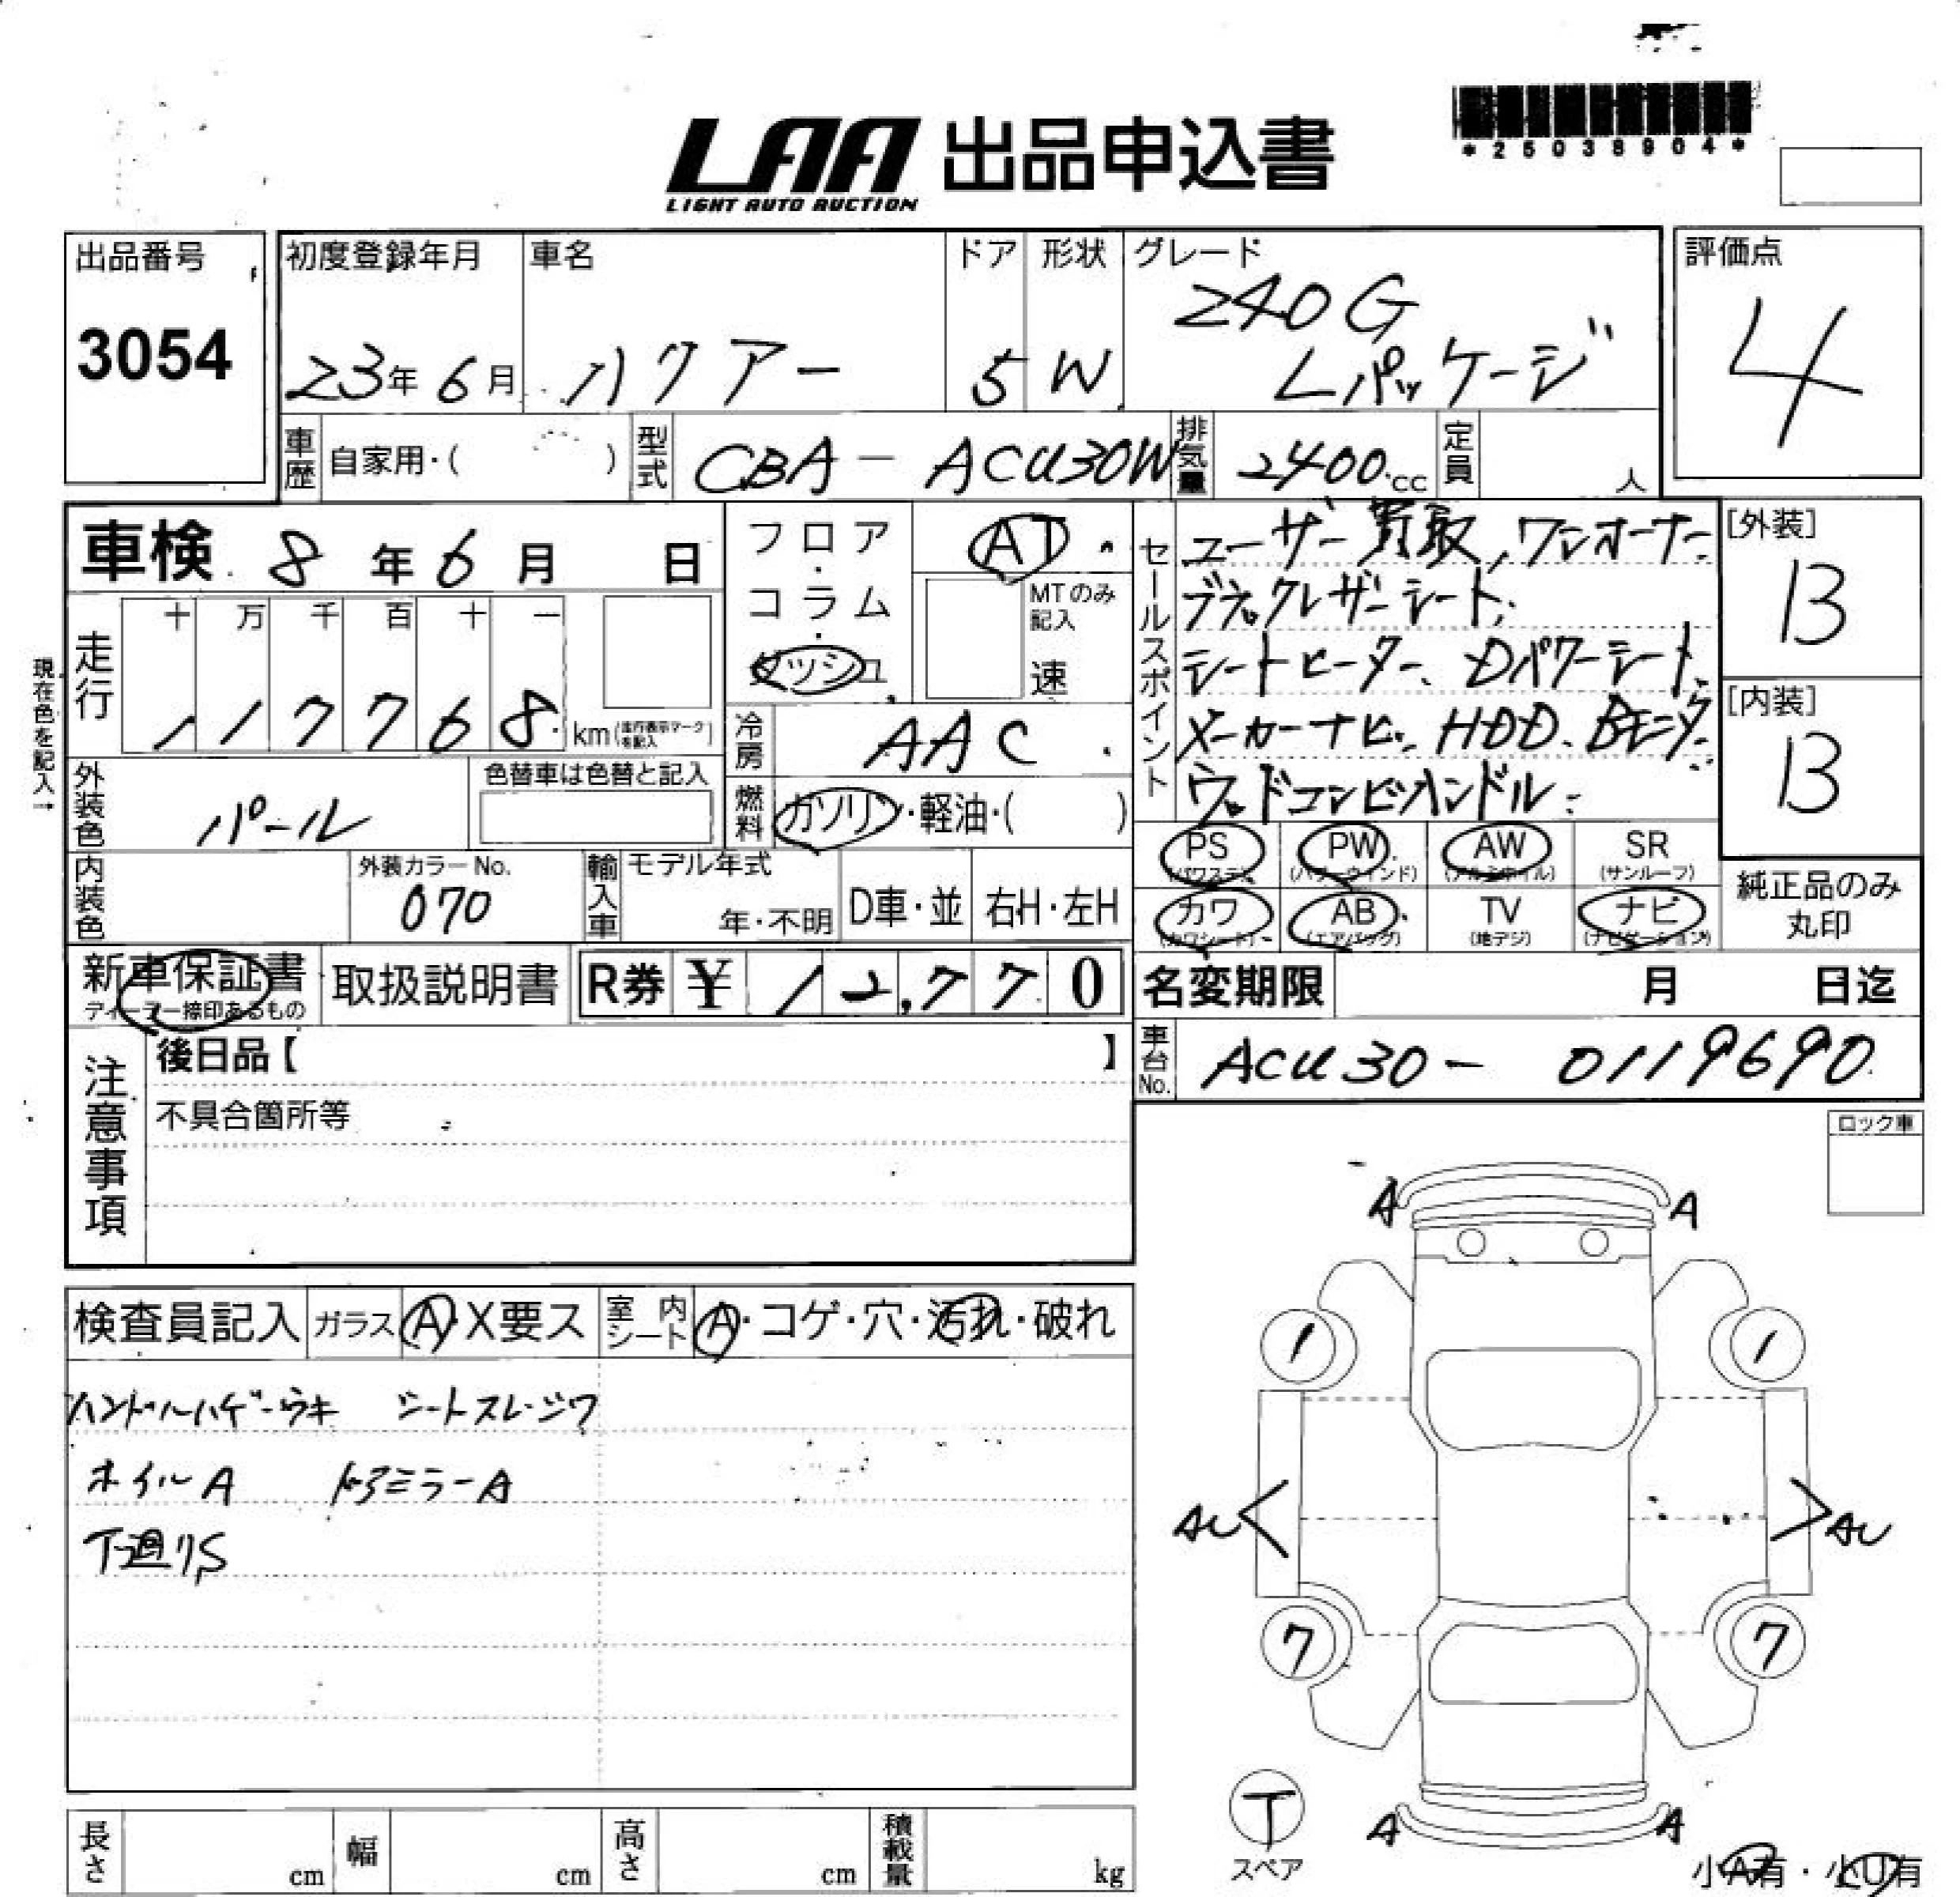 LAA 出品申込書
LIGHT AUTO AUCTION
*25038904*
出品番号
3054
初度登録年月
23年6月
車名
ハリアー
ドア
5
形状
W
グレード
240G
Lパッケージ
評価点
4
車歴 自家用・( )
型式 CBA-ACU30W
排気量 2400cc
定員 人
車検 8年6月 日
フロア・コラム・ダッシュ
AT
MTのみ記入
速
現在色を記入→
走行
十 万 千 百 十 一
1 1 7 7 6 8
km(走行表示マークを記入)
冷房 AAC
外装色 パール
色替車は色替と記入
燃料 ガソリン・軽油・( )
内装色
外装カラーNo.
070
輸入車
モデル年式
年・不明
D車・並
右H・左H
セールスポイント
ユーザー買取,ワンオーナー
ブラックレザーシート
シートヒーター、Dパワーシート
メーカーナビ、HDD、Bモニター
ウッドコンビハンドル
[外装]
B
[内装]
B
PS (パワステ)
PW (パワーウインド)
AW (アルミホイル)
SR (サンルーフ)
カワ (カワシート)
AB (エアバッグ)
TV (地デジ)
ナビ (ナビゲーション)
純正品のみ
丸印
新車保証書
ディーラー捺印あるもの
取扱説明書
R券 ¥ 12,770
名変期限 月 日迄
車台No. ACU30-0119690
注意事項
後日品【 】
不具合箇所等
ロック車
検査員記入
ガラス A・X要ス
室内シート A・コゲ・穴・汚れ・破れ
ハンドルハゲ・ウキ シートスレ・シワ
ホイルA ドアミラーA
下廻りS
A A
1 1
AU AU
7 7
A A
T
スペア
小A有・小U有
長さ cm
幅 cm
高さ cm
積載量 kg